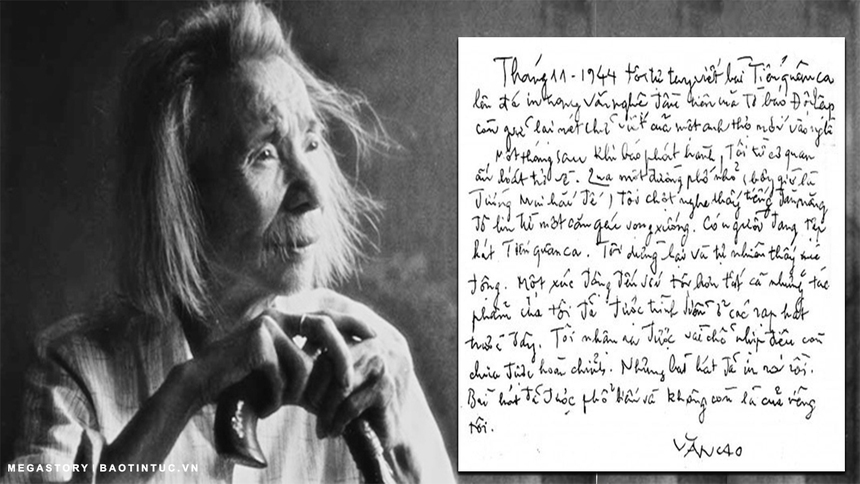 Tháng 11-1944 tôi tự tay viết bài Tiến quân ca
lên đá in trong văn nghệ đầu tiên mà tờ báo Độc lập
còn giữ lại nét chữ viết của một anh thợ mới vào nghề
Một tháng sau khi báo phát hành, Tôi từ cơ quan
ấn loát trở về. Qua một đường phố nhỏ (bây giờ là
đường Mai hắc Đế) Tôi chợt nghe thấy tiếng đàn măng
đô lin từ một căn gác vọng xuống. Có người đang tập
hát Tiến quân ca. Tôi dừng lại và tự nhiên thấy xúc
động. Một xúc động đến với tôi hơn tất cả những tác
phẩm của tôi đã được trình diễn ở các rạp hát
trước đây. Tôi nhận ra được vài chỗ nhịp điệu còn
chưa được hoàn chỉnh. Những bài hát đã in ra rồi.
Bài hát đã được phổ biến và không còn là của riêng
tôi.
VĂN CAO
MEGASTORY | BAOTINTUC.VN